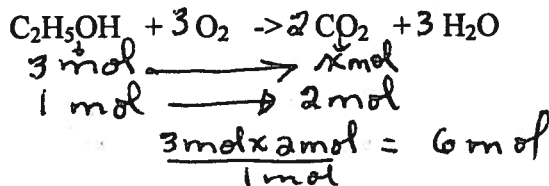 C₂H₅OH + 3 O₂ -> 2 CO₂ + 3 H₂O
3 mol → x mol
1 mol → 2 mol
3 mol x 2 mol = 6 mol
1 mol